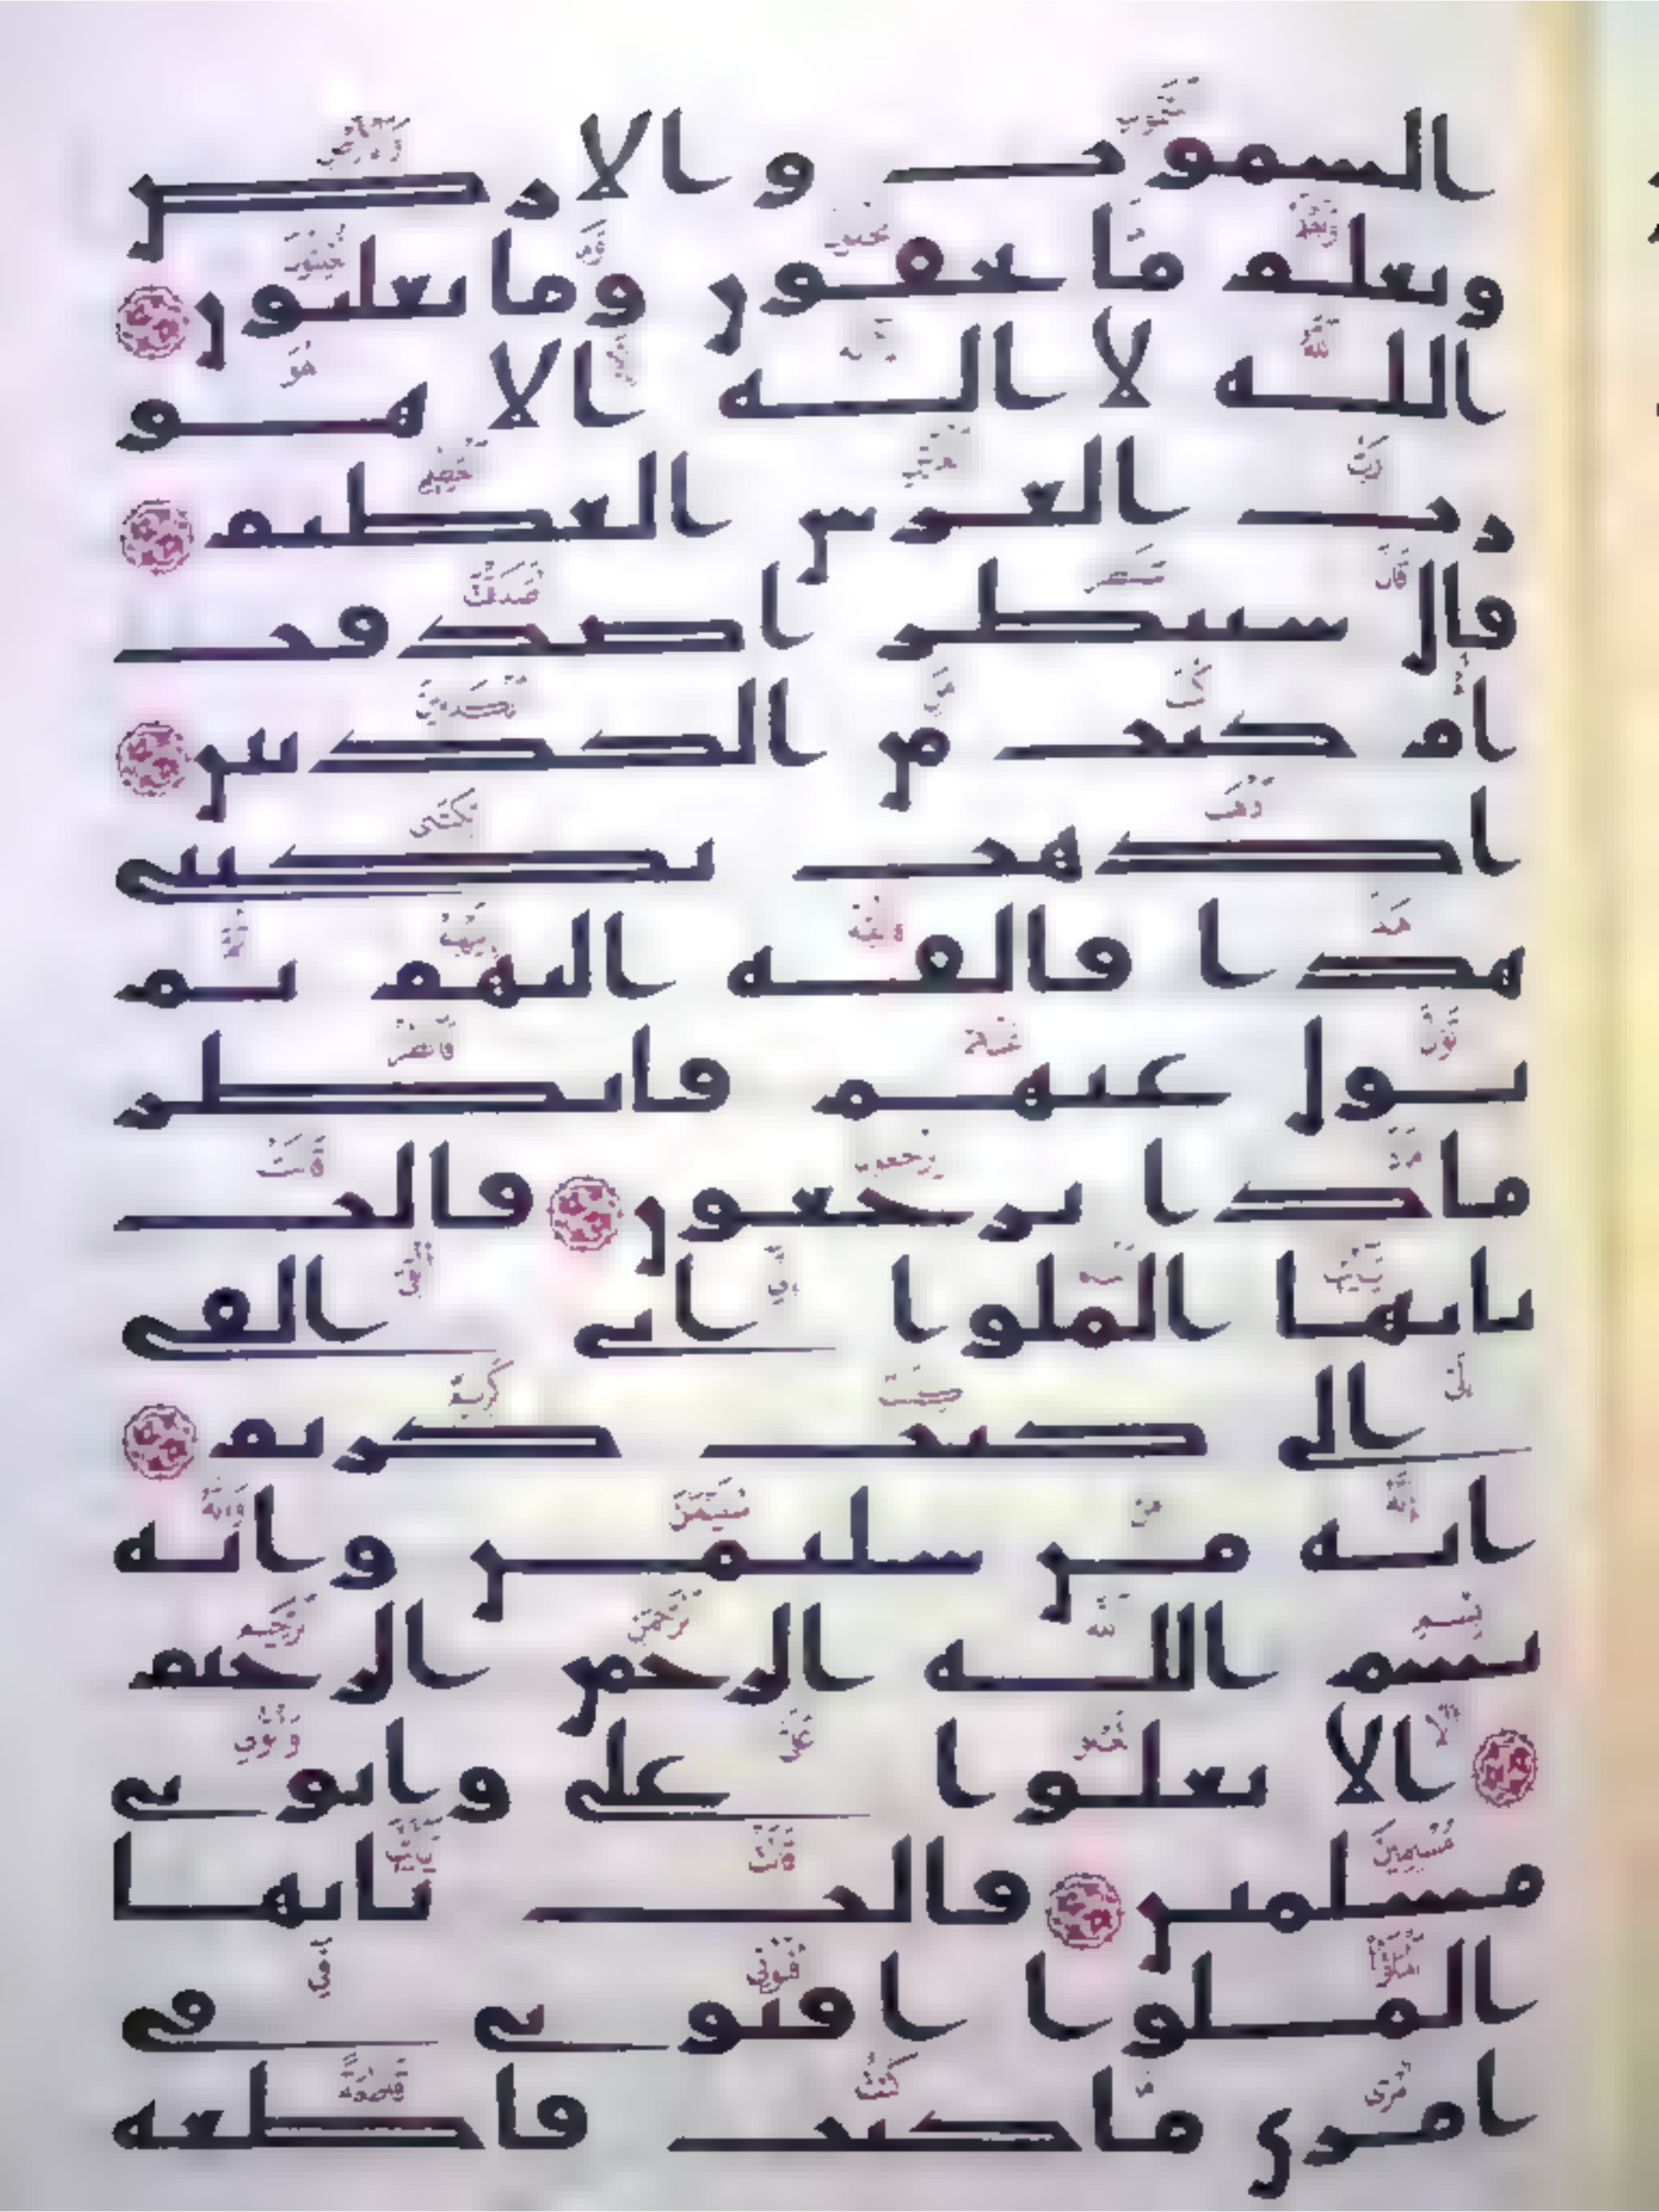 السموت والارض
ويعلم ما تخفون وما تعلنون
الله لا اله الا هو
رب العرش العظيم
قال سننظر اصدقت
ام كنت من الكذبين
اذهب بكتبي
هذا فالقه اليهم ثم
تول عنهم فانظر
ماذا يرجعون قالت
يايها الملوا اني القي
الي كتب كريم
انه من سليمن وانه
بسم الله الرحمن الرحيم
الا تعلوا علي واتوني
مسلمين قالت يايها
الملوا افتوني في
امري ما كنت قاطعه